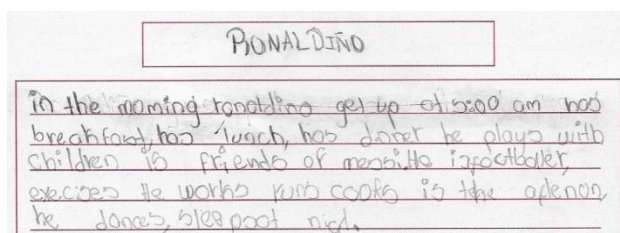 RONALDIÑO
in the morning ronaldino get up at 5:00 am has
breakfast, has lunch, has diner he plays with
children is friends of messi He is footballer,
execises He works runs cooks is the afenon,
he dances, sleep aat nigt.